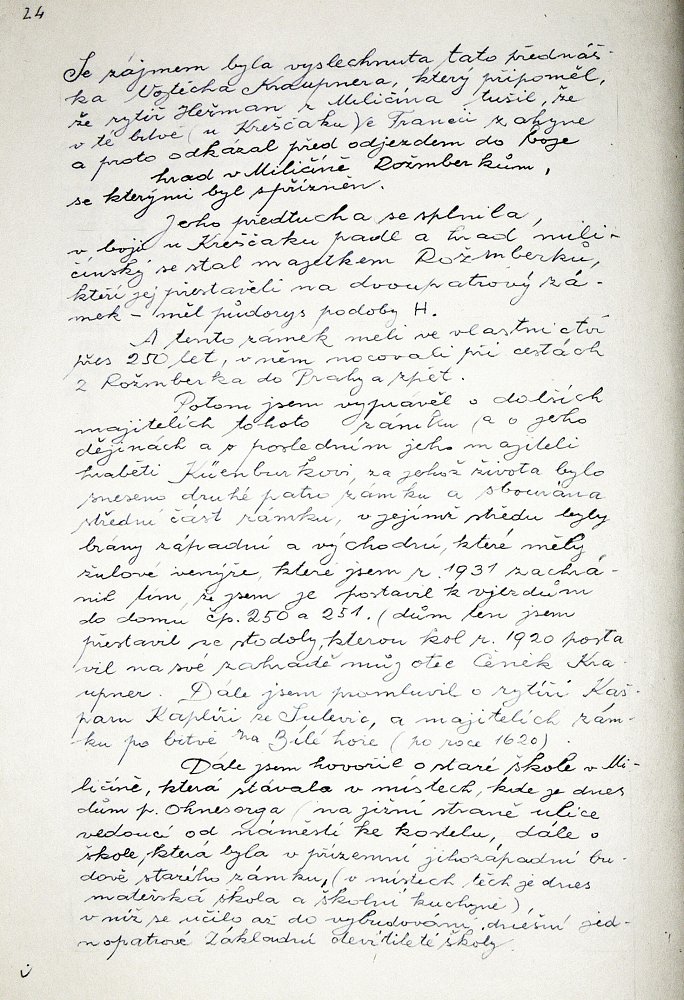 24
Se zájmem byla vyslechnuta tato přednáš-
ka Vojtěcha Kraupnera, který připoměl,
že rytíř Heřman z Miličína tušil, že
v té bitvě (u Kreščaku) ve Francii zahyne
a proto odkázal před odjezdem do boje
hrad v Miličíně Rožmberkům,
se kterými byl spřízněn.
Jeho předtucha se splnila,
v boji u Kreščaku padl a hrad mili-
čínský se stal majetkem Rožmberků,
kteří jej přestavěli na dvoupatrový zá-
mek - měl půdorys podoby H.
A tento zámek měli ve vlastnictví
přes 250 let, v něm nocovali při cestách
z Rožmberka do Prahy a zpět.
Potom jsem vyprávěl o dalších
majitelích tohoto zámku (a o jeho
dějinách a o posledním jeho majiteli
hraběti Küenburkovi, za jehož života bylo
sneseno druhé patro zámku a sbourána
střední část zámku, v jejímž středu byly
brány západní a východní, které měly
žulové venýře, které jsem r. 1931 zachrá-
nil tím, že jsem je postavil k vjezdům
do domu čp. 250 a 251. (dům ten jsem
přestavil ze stodoly, kterou kol r. 1920 posta
vil na své zahradě můj otec Čeněk Kra-
upner. Dále jsem promluvil o rytíři Kaš-
param Kaplíři ze Sulevic, a majitelích zám-
ku po bitvě na Bílé hoře (po roce 1620).
Dále jsem hovořil o staré škole v Mi-
ličíně, která stávala v místech, kde je dnes
dům p. Ohnesorga (na jižní straně ulice
vedoucí od náměstí ke kostelu, dále o
škole, která byla v přízemní jihozápadní bu-
dově starého zámku, (v místech těch je dnes
mateřská škola a školní kuchyně)
v níž se učilo až do vybudování dnešní jed-
nopatrové Základní devítileté školy.